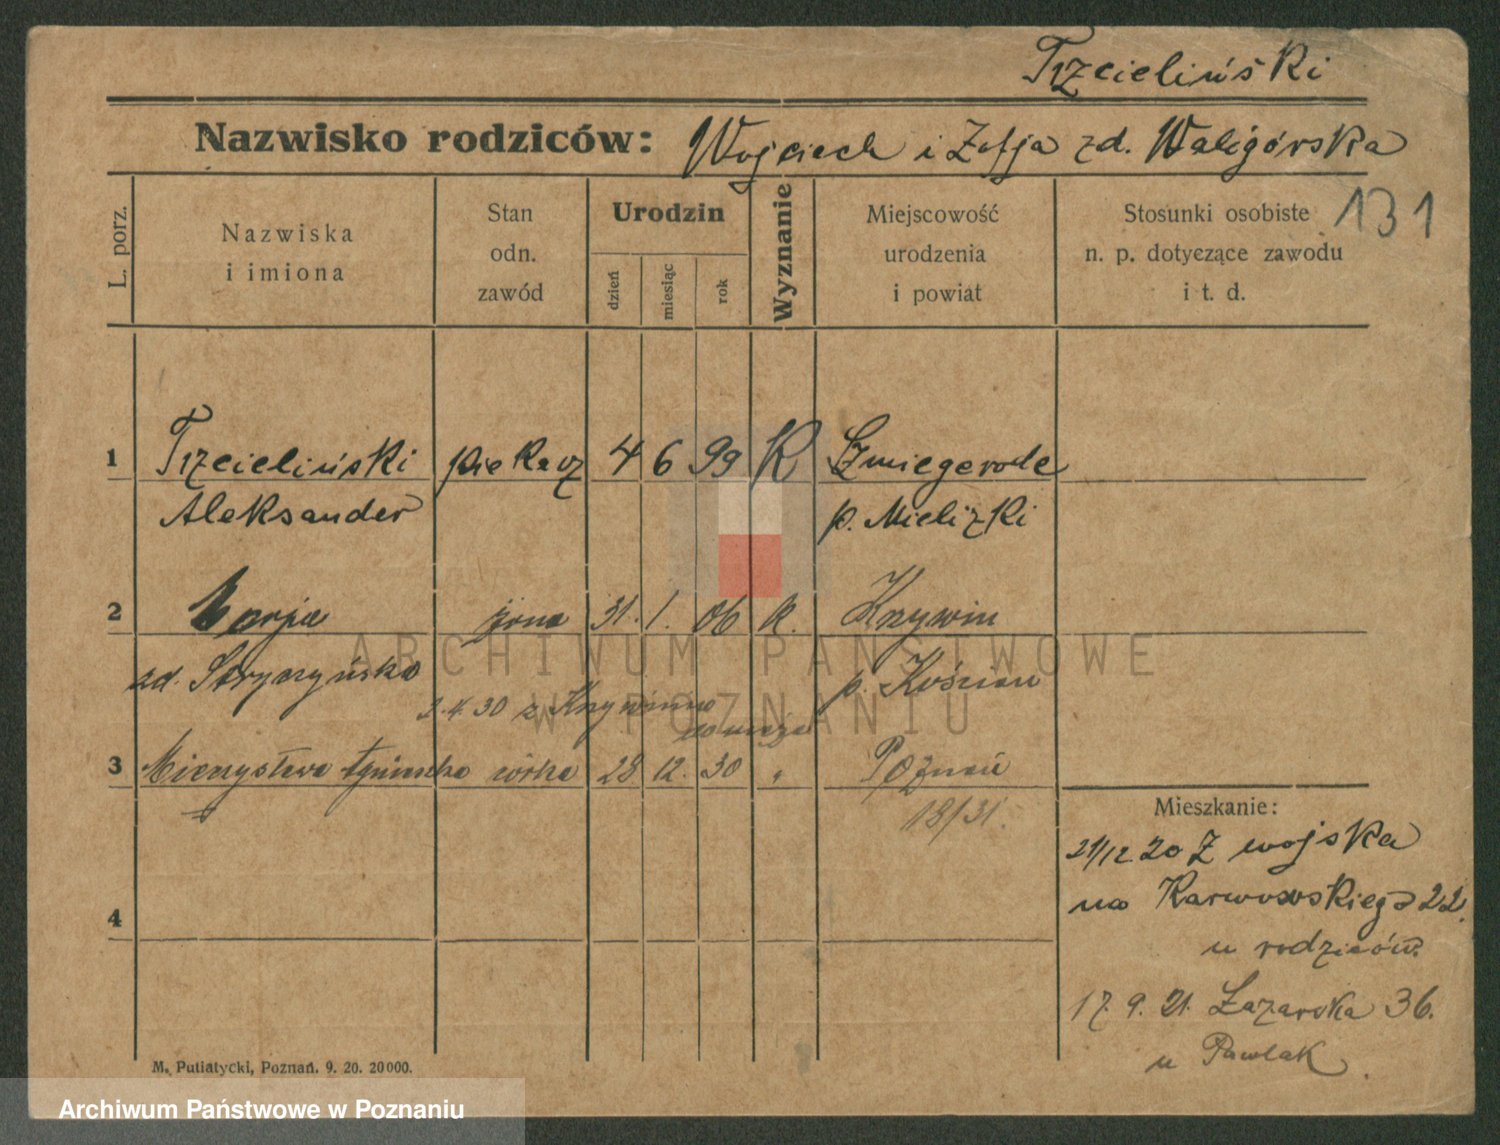 Trzcieliński
Nazwisko rodziców: Wojciech i Zofja zd. Waligórska
131
L. porz.
Nazwiska
i imiona
Stan
odn.
zawód
Urodzin
dzień
miesiąc
rok
Wyznanie
Miejscowość
urodzenia
i powiat
Stosunki osobiste
n. p. dotyczące zawodu
i t. d.
1 Trzcieliński piekarz 4 6 99 K
Aleksander p.
2 Marja żona 31. 1. 06 k. Krzywiń
zd. p. Kościan
2.4.30 z Krzywinia
do męża
3 Mieczysława córka 28 12. 30 " Poznań
18/31.
Mieszkanie:
21/12 20 Z wojska
na Karwowskiego 22.
u rodziców.
4
17. 9. 21. Łazarska 36.
u Pawlak
M. Putiatycki, Poznań. 9. 20. 20000.
ARCHIWUM PAŃSTWOWE
W POZNANIU
Archiwum Państwowe w Poznaniu